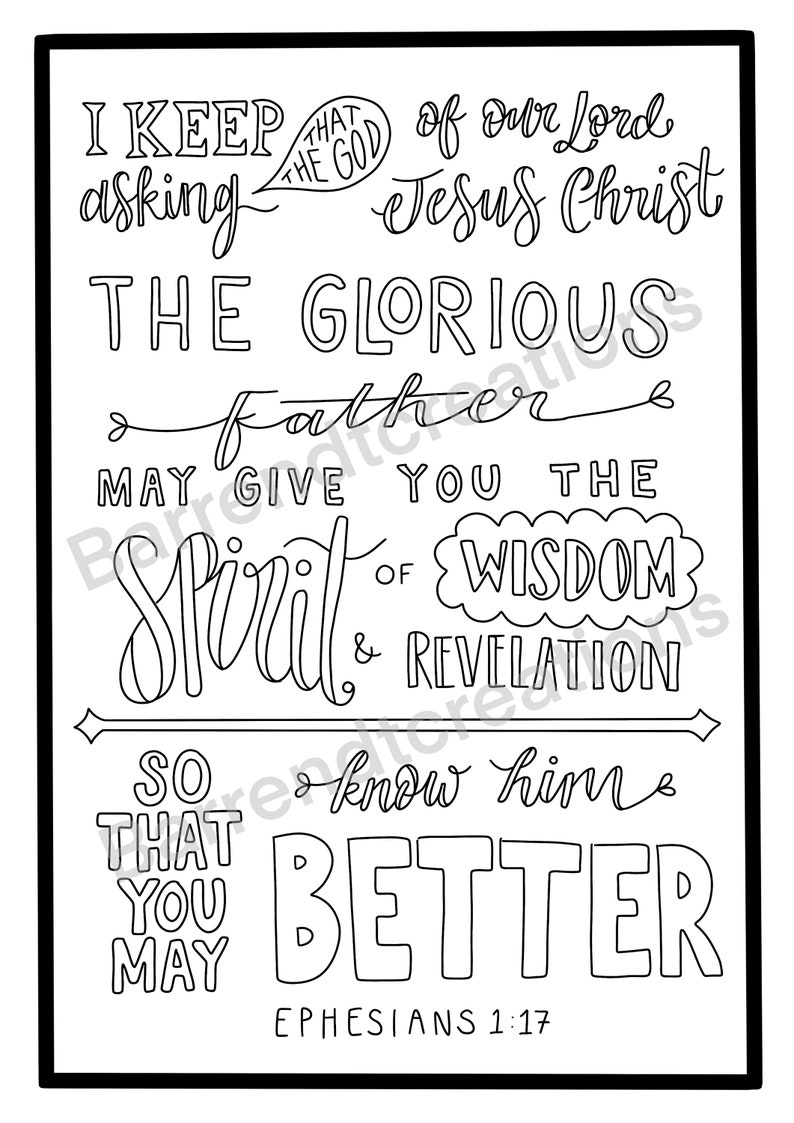 I KEEP
asking
THAT
THE GOD
of our Lord
Jesus Christ
THE GLORIOUS
father
MAY GIVE YOU THE
Spirit OF WISDOM
& REVELATION
SO
THAT
YOU
MAY
know him
BETTER
EPHESIANS 1:17
Barrendtcreations
Barrendtcreations